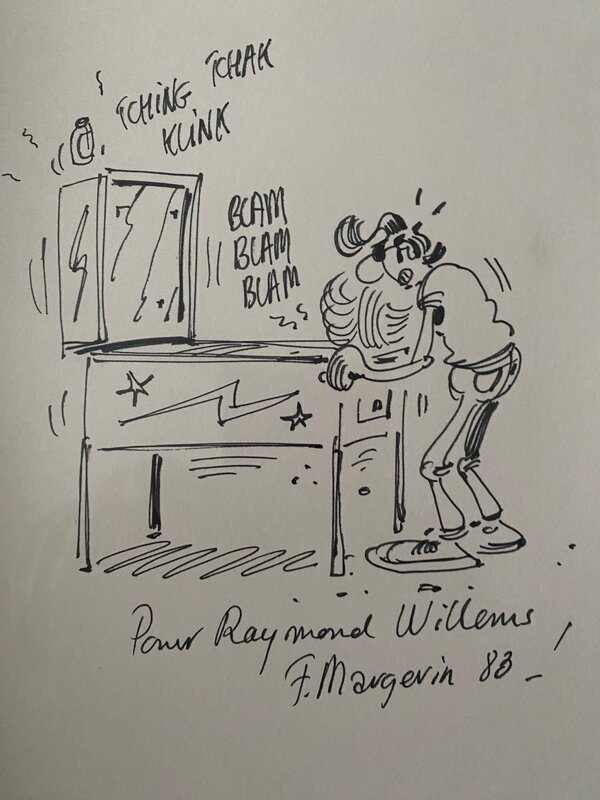 TCHING TCHAK
KLINK
BLAM
BLAM
BLAM
Pour Raymond Willems
F. Margerin 83 _ !